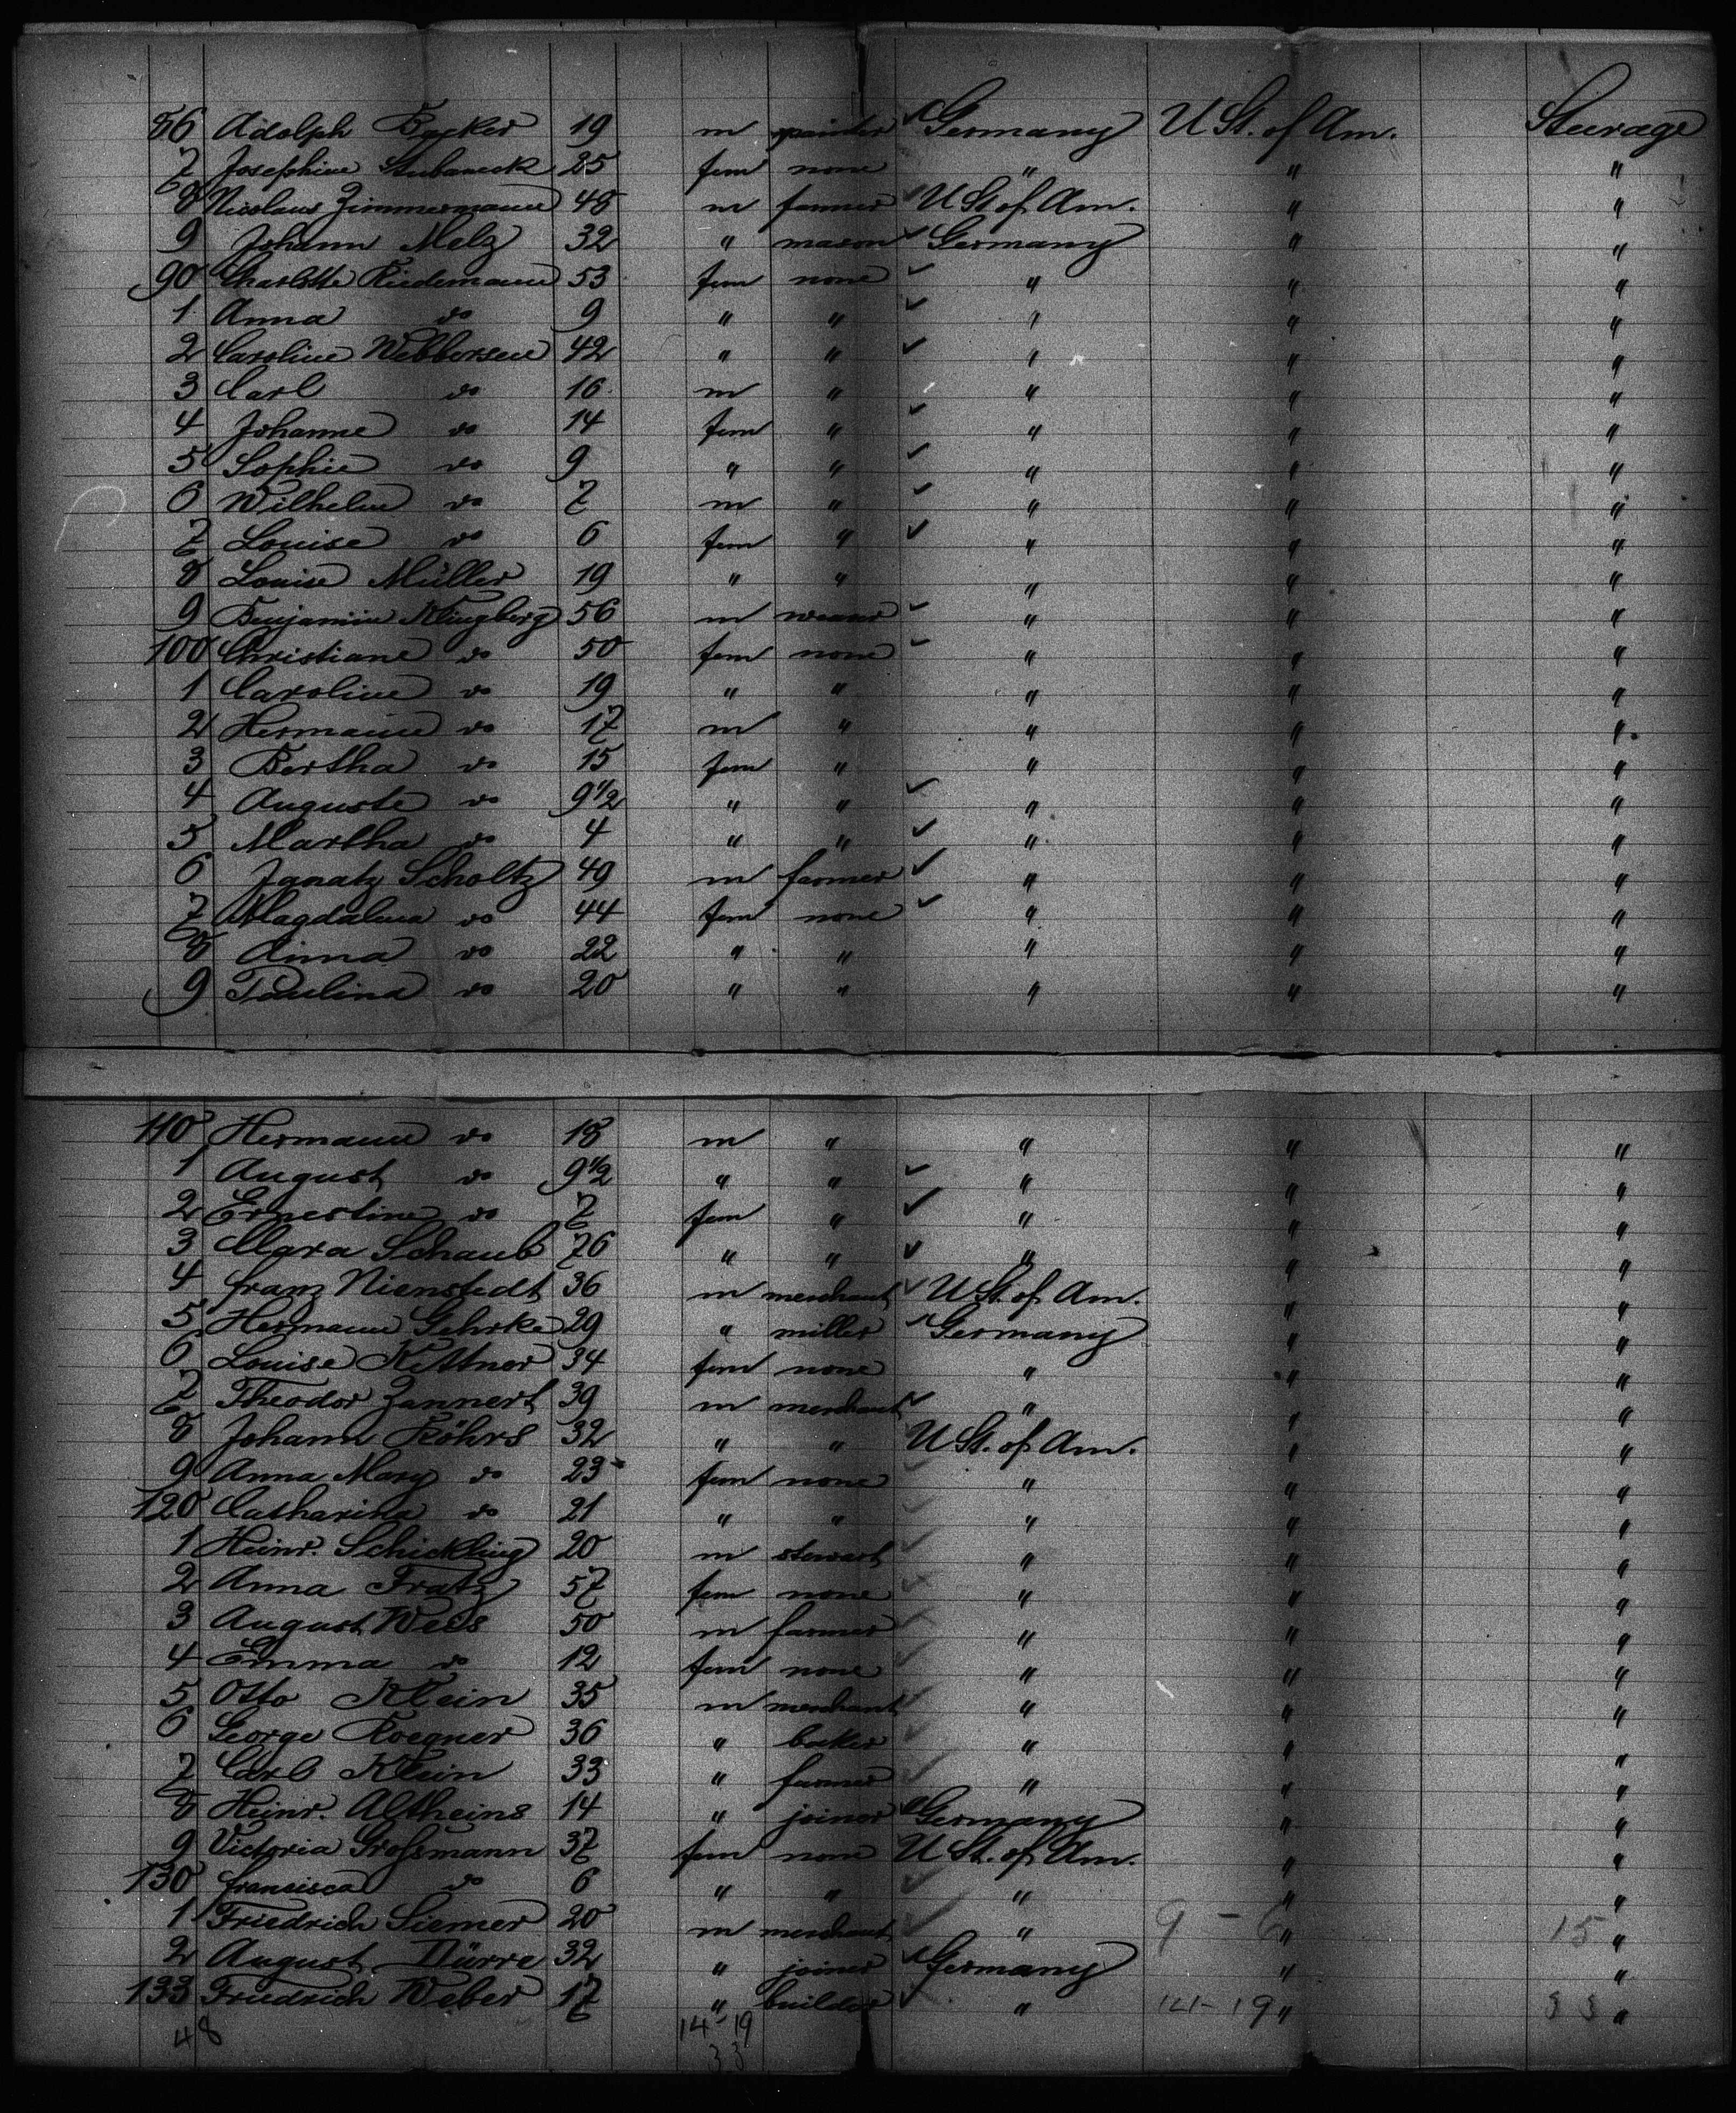 86 Adolph Becker 19 m painter Germany U St. of Am. Steerage
7 Josephine 25 fem none " " "
8 Nicolaus Zimmermann 48 m farmer U St. of Am. " "
9 Johann Melz 32 " mason Germany " "
90 Charlotte Riedemann 53 fem none " " "
1 Anna do 9 " " " " "
2 Caroline Webbersen 42 " " " " "
3 Carl do 16 m " " " "
4 Johanne do 14 fem " " " "
5 Sophie do 9 " " " " "
6 Wilhelm do 7 m " " " "
7 Louise do 6 fem " " " "
8 Louise Müller 19 " " " " "
9 Benjamin Klingberg 56 m weaver " " "
100 Christiane do 50 fem none " " "
1 Caroline do 19 " " " " "
2 Hermann do 17 m " " " "
3 Bertha do 15 fem " " " "
4 Auguste do 9 1/2 " " " " "
5 Martha do 4 " " " " "
6 Ignatz Scholtz 49 m farmer " " "
7 Magdalena do 44 fem none " " "
8 Anna do 22 " " " " "
9 Paulina do 20 " " " " "
110 Hermann do 18 m " " " "
1 August do 9 1/2 " " " " "
2 Ernestine do 7 fem " " " "
3 Clara Schaub 26 " " " " "
4 Franz Nienstedt 36 m merchant U St. of Am. " "
5 Hermann Gehrke 29 " miller Germany " "
6 Louise Kettner 34 fem none " " "
7 Theodor Zannert 39 m merchant " " "
8 Johann Röhrs 32 " " U St. of Am. " "
9 Anna Mary do 23 fem none " " "
120 Catharina do 21 " " " " "
1 Heinr. Schickling 20 m stewart " " "
2 Anna Fratz 57 fem none " " "
3 August Weis 50 m farmer " " "
4 Emma do 12 fem none " " "
5 Otto Klein 35 m merchant " " "
6 George Roegner 36 " baker " " "
7 Carl Klein 33 " farmer " " "
8 Heinr. Altheins 14 " joiner Germany " "
9 Victoria Großmann 37 fem none U St. of Am. " "
130 Francisca do 6 " " " " "
1 Friedrich Siemer 20 m merchant " 9 - 6 " 15 "
2 August Dürre 32 " joiner Germany " "
133 Friedrich Weber 17 " builder " 14-19 " 33 "
48 14-19
33